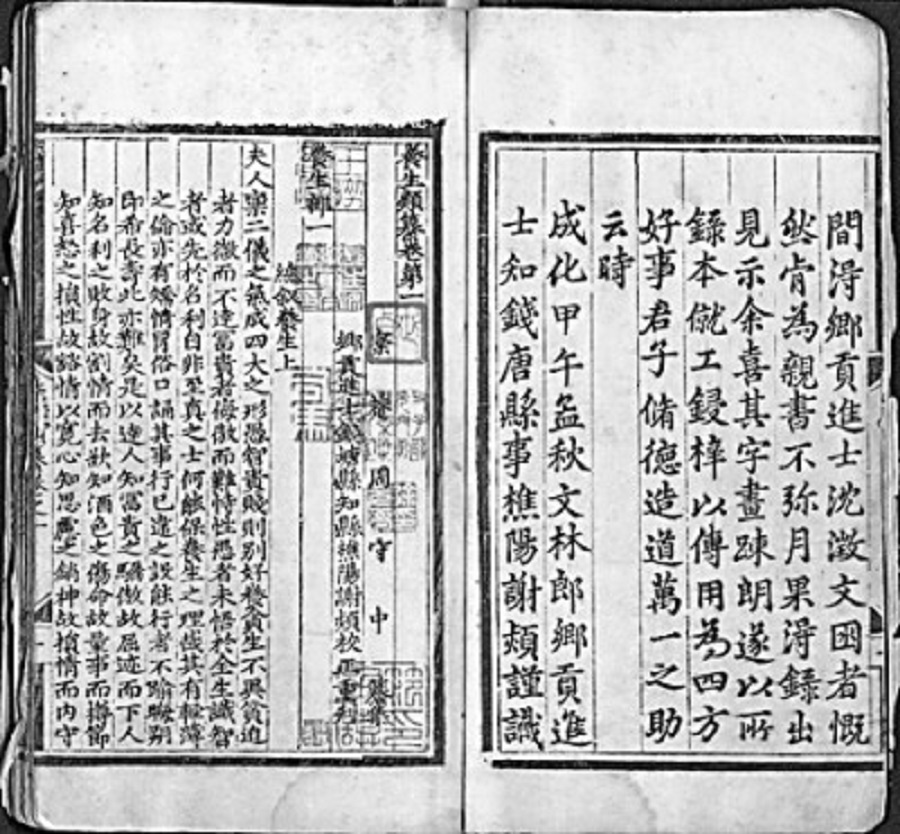 間淂鄉貢進士沈澂文囦者慨
然肯為親書不弥月果淂錄出
見示余喜其字畫踈朗遂以所
錄本僦工鋟梓以傳用為四方
好事君子脩德造道萬一之助
云時
成化甲午孟秋文林郎鄉貢進
士知錢唐縣事樵陽謝熲謹識
養生類纂卷第一
菴周守中纂集
鄉貢進士錢塘縣知縣樵陽謝熲校正重刊
養生部一
總叙養生上
夫人稟二儀之氣成四大之形愚智貴賤則别好養貪生不異貧迫
者力微而不達富貴者侮傲而難恃性愚者未悟於全生識智
者或先於名利自非至真之士何能保養生之理哉其有輕薄
之倫亦有矯情冒俗口誦其事行已違之設能行者不踰晦朔
即希長壽此亦難矣是以達人知富貴之驕傲故屈迹而下人
知名利之敗身故割情而去欲知酒色之傷命故量事而撙節
知喜怒之損性故豁情以寛心知思慮之銷神故損情而内守